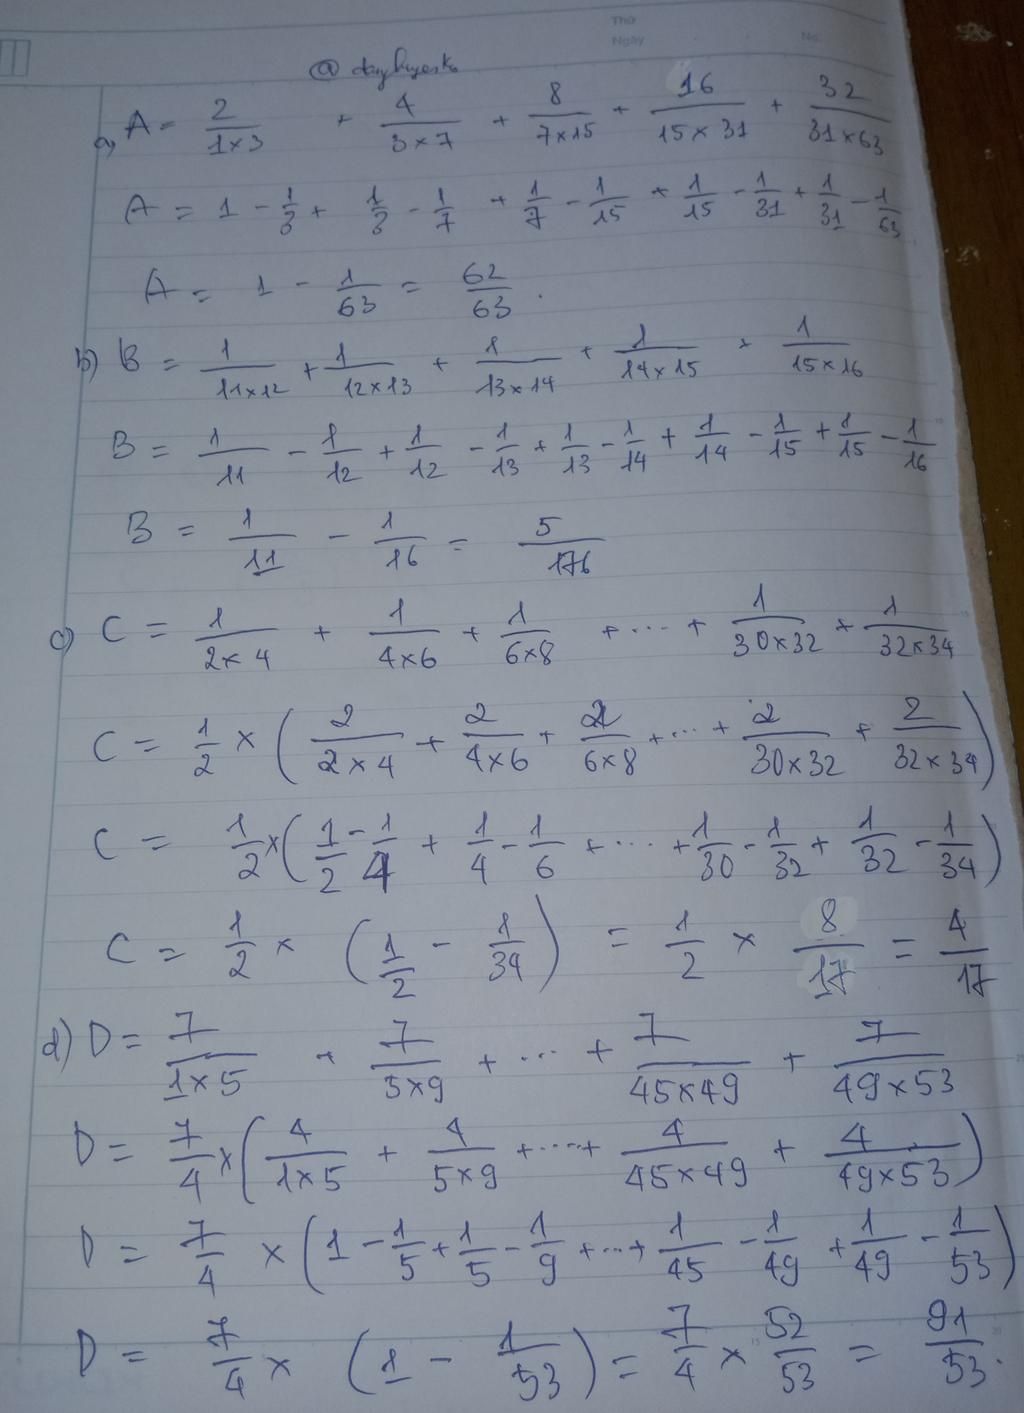 Thứ
Ngày
No.
a) A = 2/(1×3) + 4/(3×7) + 8/(7×15) + 16/(15×31) + 32/(31×63)
A = 1 - 1/3 + 1/3 - 1/7 + 1/7 - 1/15 + 1/15 - 1/31 + 1/31 - 1/63
A = 1 - 1/63 = 62/63.
b) B = 1/(11×12) + 1/(12×13) + 1/(13×14) + 1/(14×15) + 1/(15×16)
B = 1/11 - 1/12 + 1/12 - 1/13 + 1/13 - 1/14 + 1/14 - 1/15 + 1/15 - 1/16
B = 1/11 - 1/16 = 5/176
c) C = 1/(2×4) + 1/(4×6) + 1/(6×8) + ... + 1/(30×32) + 1/(32×34)
C = 1/2 × (2/(2×4) + 2/(4×6) + 2/(6×8) + ... + 2/(30×32) + 2/(32×34))
C = 1/2 × (1/2 - 1/4 + 1/4 - 1/6 + ... + 1/30 - 1/32 + 1/32 - 1/34)
C = 1/2 × (1/2 - 1/34) = 1/2 × 8/17 = 4/17
d) D = 7/(1×5) + 7/(5×9) + ... + 7/(45×49) + 7/(49×53)
D = 7/4 × (4/(1×5) + 4/(5×9) + ... + 4/(45×49) + 4/(49×53))
D = 7/4 × (1 - 1/5 + 1/5 - 1/9 + ... + 1/45 - 1/49 + 1/49 - 1/53)
D = 7/4 × (1 - 1/53) = 7/4 × 52/53 = 91/53.